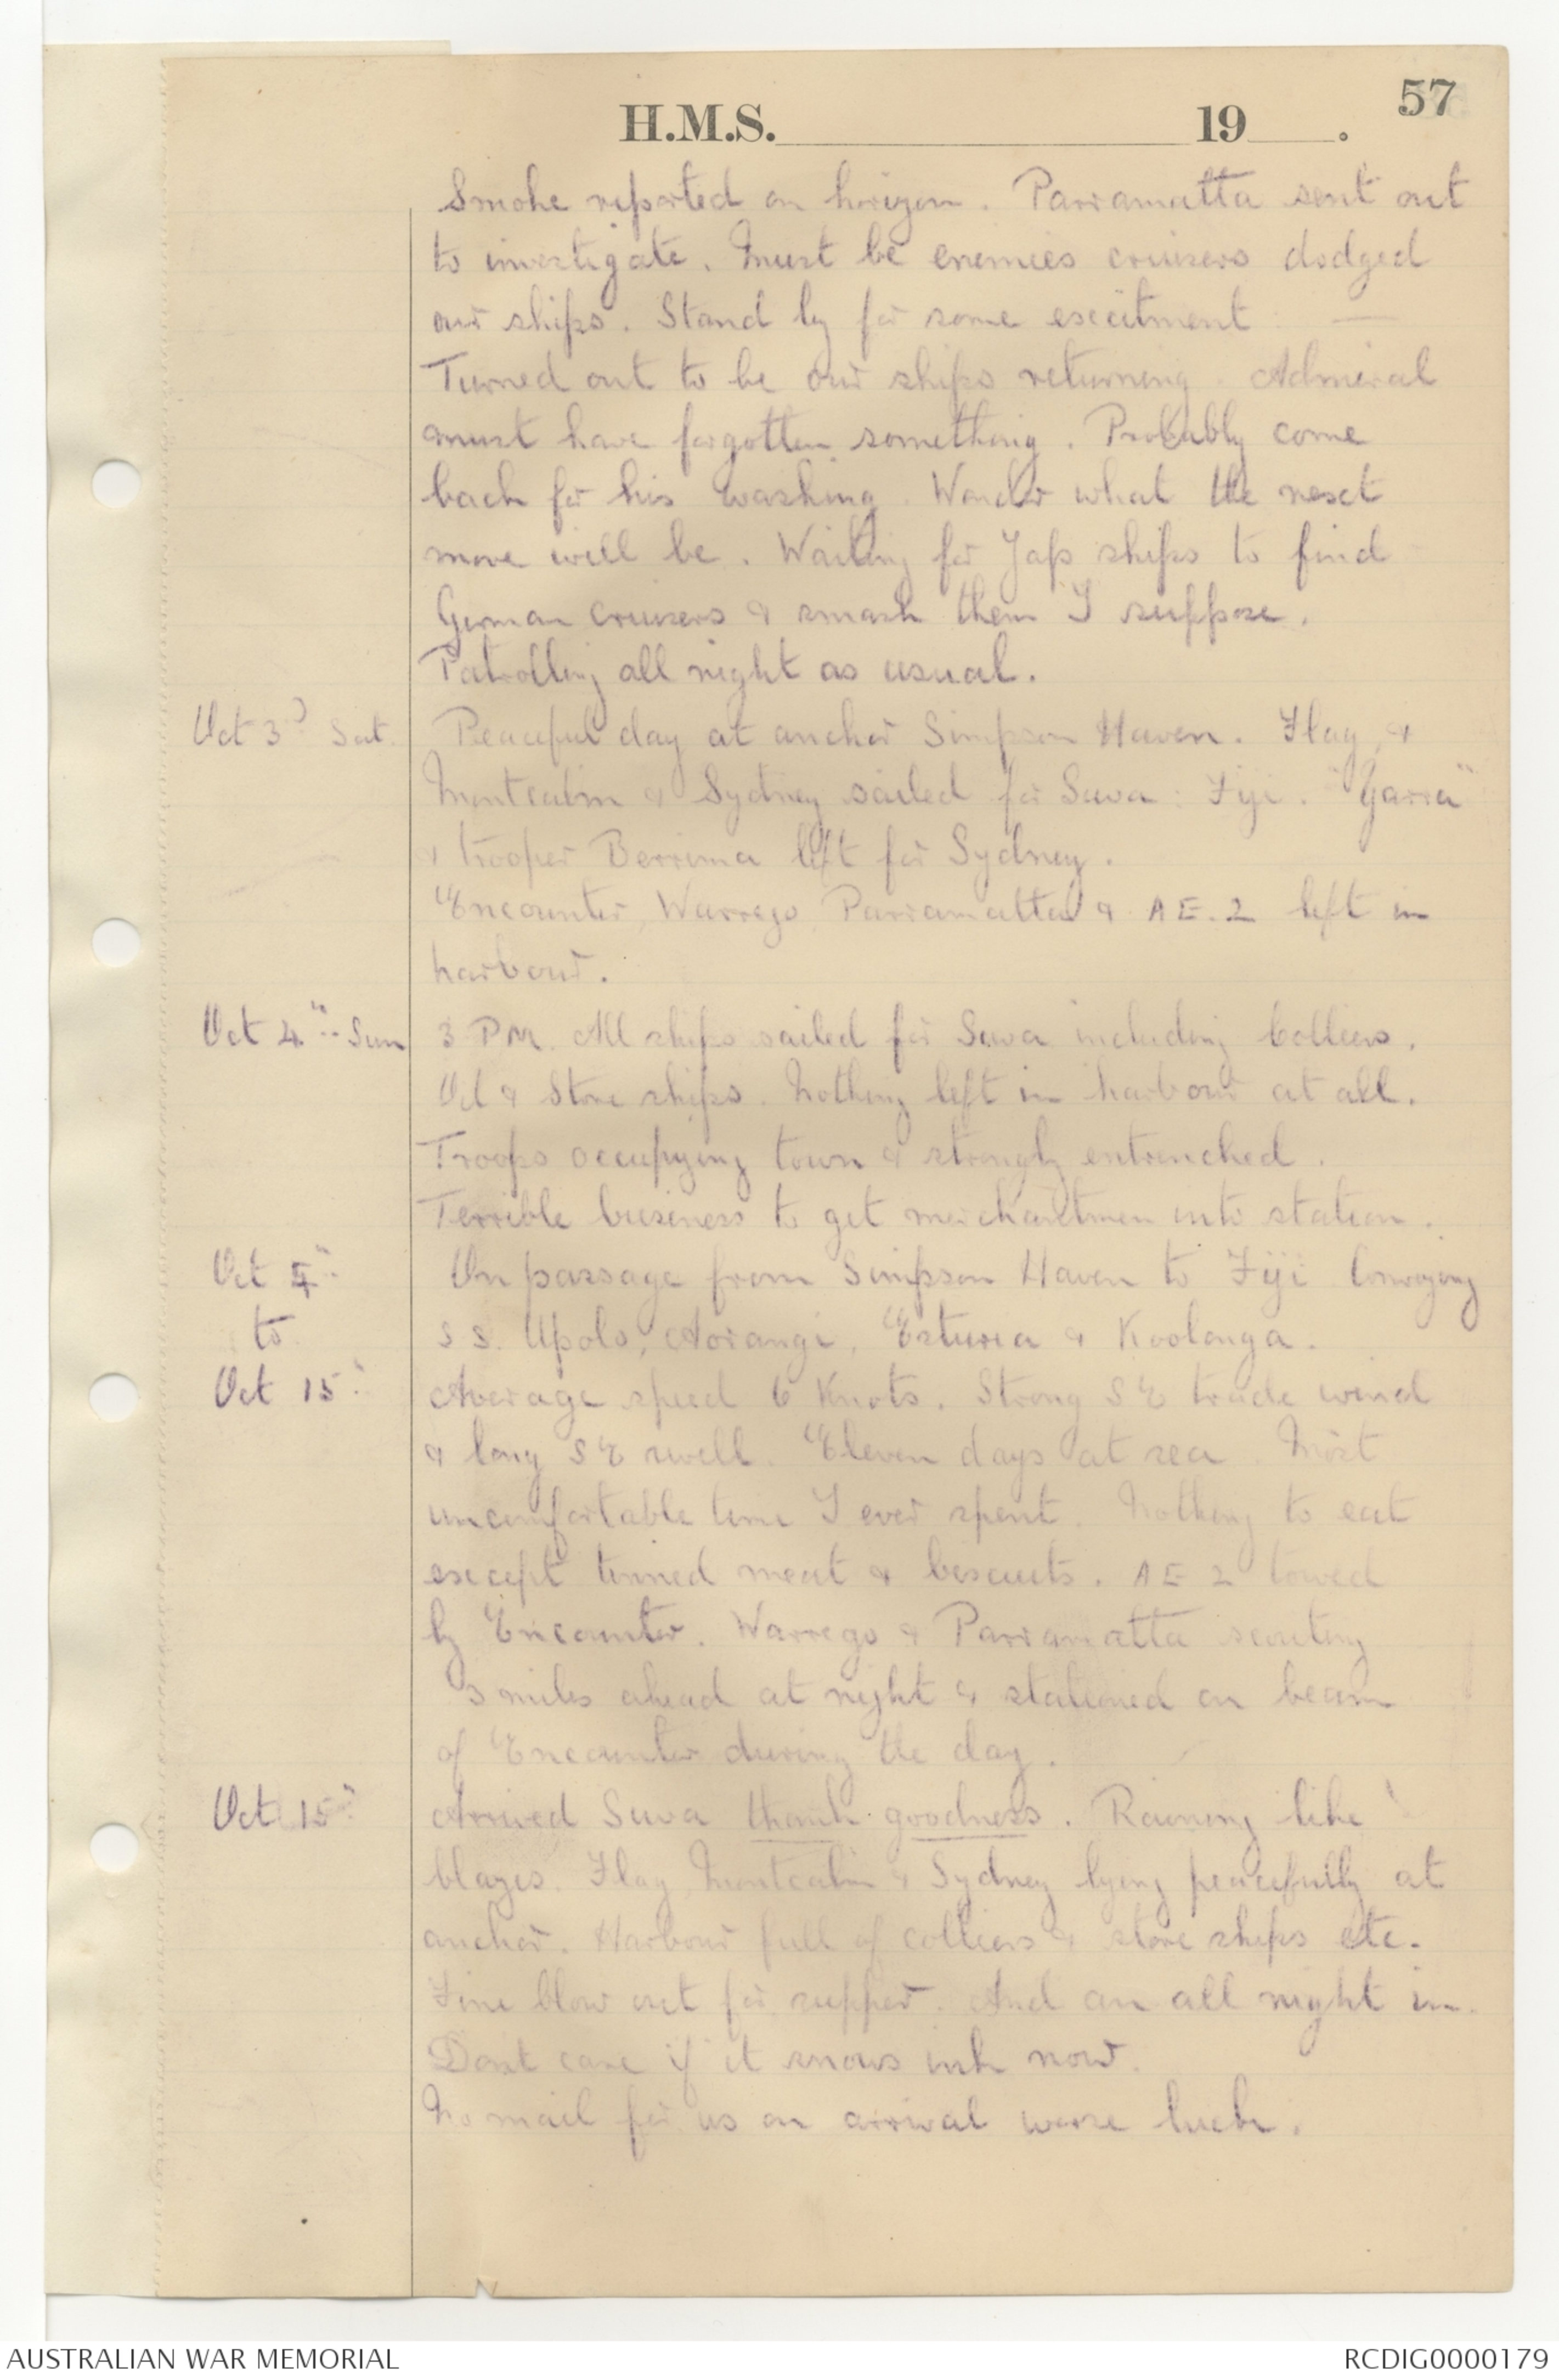 57
H.M.S. 19 .
Smoke reported on horizon. Parramatta sent out
to investigate. Must be enemies cruisers dodged
our ships. Stand by for some excitment —
Turned out to be our ships returning. Admiral
must have forgotten something. Probably come
back for his washing. Wonder what the next
move will be. Waiting for Jap ships to find
German cruisers & smash them I suppose.
Patrolling all night as usual.
Oct 3rd Sat. Peaceful day at anchor Simpson Haven. Flag, &
Montcalm & Sydney sailed for Suva: Fiji. "Yarra"
& trooper Berrima left for Sydney.
Encounter, Warrego Parramatta & AE.2 left in
harbour.
Oct 4th Sun 3 PM. All ships sailed for Suva including Colliers.
Oil & Store ships. Nothing left in harbour at all.
Troops occupying town & strongly entrenched.
Terrible business to get merchantmen into station.
Oct 5th On passage from Simpson Haven to Fiji Convoying
to S S. Upolo, Aorangi, Esturia & Koolonga.
Oct 15th Average speed 6 Knots. Strong S E trade wind
& long S E swell. Eleven days at sea. Most
uncomfortable time I ever spent. Nothing to eat
except tinned meat & biscuits. AE 2 towed
by Encounter. Warrego & Parramatta scouting
3 miles ahead at night & stationed on beam
of Encounter during the day.
Oct 15th Arrived Suva thank goodness. Raining like
blazes. Flag, Montcalm & Sydney lying peacefully at
anchor. Harbour full of colliers & store ships etc.
Fine blow out for supper. And an all night in.
Dont care if it snows ink now.
No mail for us on arrival worse luck.
AUSTRALIAN WAR MEMORIAL
RCDIG0000179